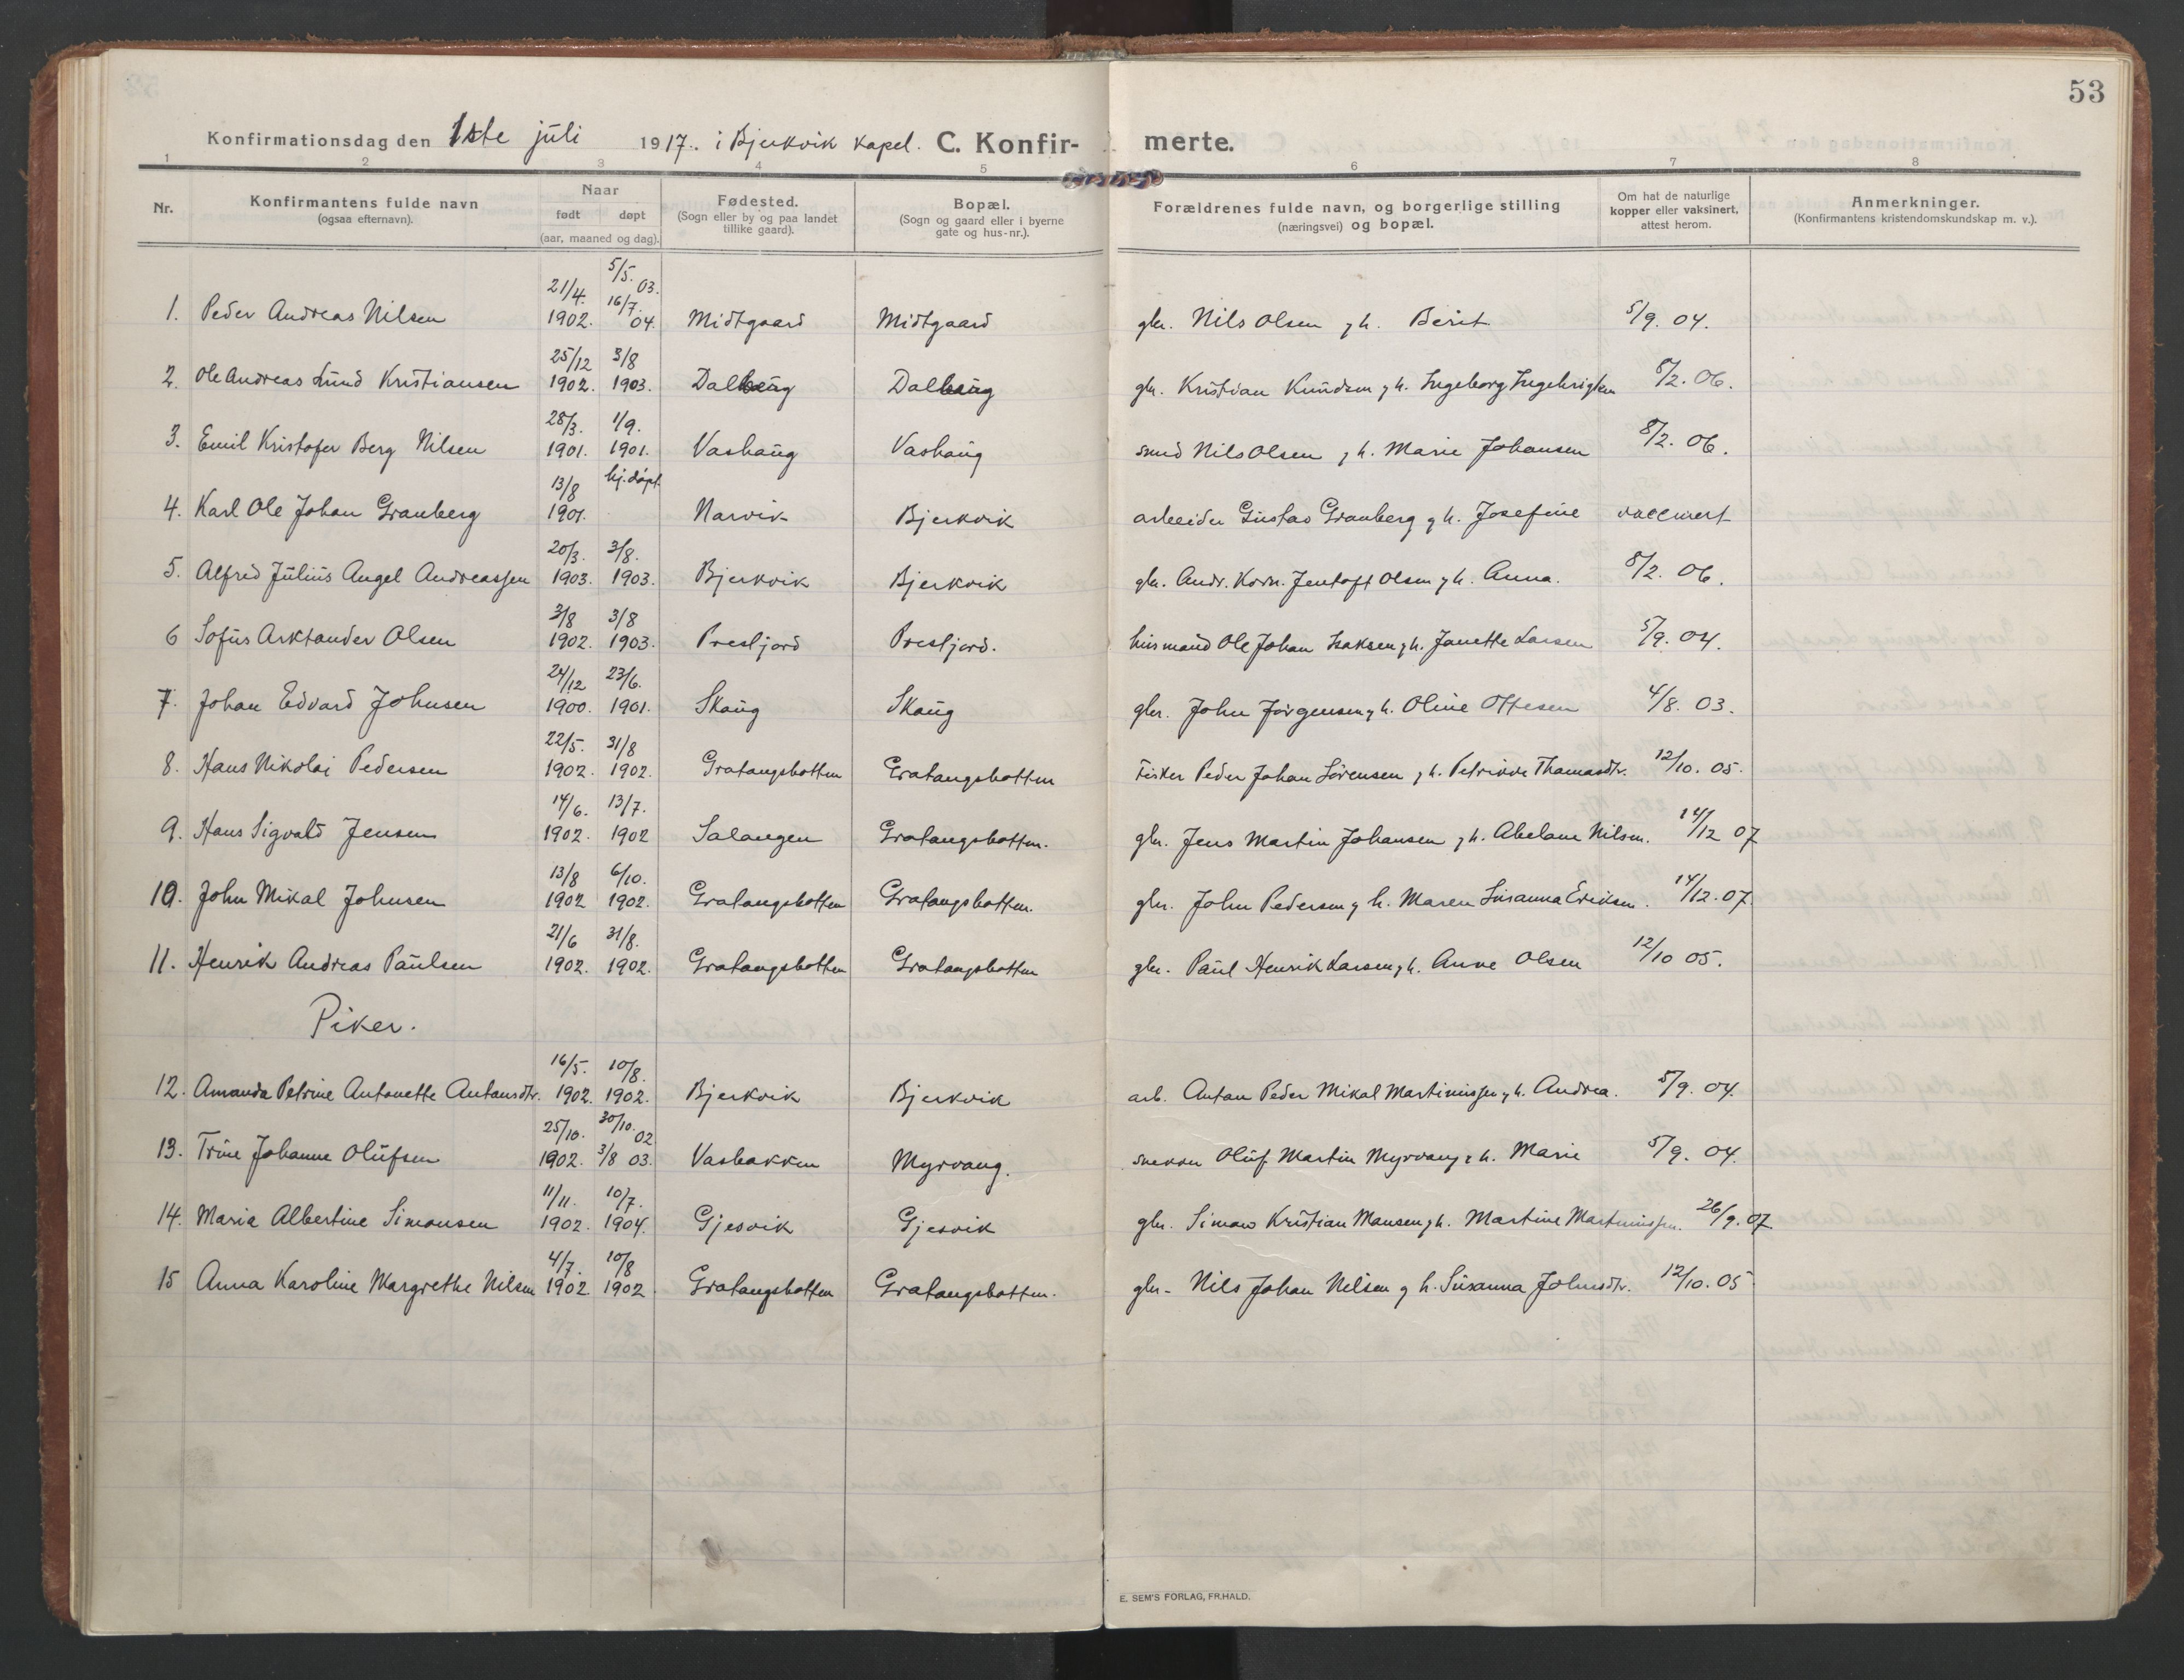 53
Konfirmationsdag den 1ste juli 1917. i Bjerkvik kapel. C. Konfir- merte.
1 2 3 4 5 6 7 8
Nr. Konfirmantens fulde navn (ogsaa efternavn). Naar født døpt (aar, maaned og dag). Fødested. (Sogn eller by og paa landet tillike gaard). Bopæl. (Sogn og gaard eller i byerne gate og hus-nr.). Forældrenes fulde navn, og borgerlige stilling (næringsvei) og bopæl. Om hat de naturlige kopper eller vaksinert, attest herom. Anmerkninger. (Konfirmantens kristendomskundskap m. v.).
1. Peder Andreas Nilsen 21/4. 1902. 5/5. 03. 16/7. 04. Midtgaard Midtgaard gbr. Nils Olsen g h. Berit 5/9. 04.
2. Ole Andreas Lund Kristiansen 25/12 1902. 3/8 1903. Dalhaug Dalhaug gbr. Kristian Knudsen g h. Ingeborg Ingebrigtsen 8/2. 06.
3. Emil Kristofer Berg Nilsen 28/3. 1901. 1/9. 1901. Vashaug Vashaug smed Nils Olsen g h. Marie Johansen 8/2. 06.
4. Karl Ole Johan Granberg 13/8 1901. hj. døpt. Narvik Bjerkvik arbeider Gustav Granberg g h. Josefine vaccinert
5. Alfred Julius Angel Andreassen 20/3. 1903. 3/8. 1903. Bjerkvik Bjerkvik gbr. Andr. Korn. Jentoft Olsen g h. Anna. 8/2. 06.
6 Sofus Arktander Olsen 3/8 1902. 3/8 1903. Prestjord Prestjord. husmand Ole Johan Isaksen g h. Janette Larsen 5/9. 04.
7. Johan Edvard Johnsen 24/12 1900. 23/6. 1901. Skaug Skaug gbr. John Jørgensen g h. Oline Ottesen 4/8. 03.
8. Hans Nikolai Pedersen 22/5. 1902. 31/8 1902. Gratangsbotten Gratangsbotten Fisker Peder Johan Sørensen g h. Petrikke Thomasdtr. 12/10. 05.
9. Hans Sigvald Jensen 14/6. 1902. 13/7. 1902 Salangen Gratangsbotten. gbr. Jens Martin Johansen g h. Abelone Nilsen. 14/12 07
10. John Mikal Johnsen 13/8 1902 6/10. 1902. Gratangsbotten Gratangsbotten. gbr. John Pedersen g h. Maren Susanna Eriksen. 14/12. 07.
11. Henrik Andreas Paulsen 21/6 1902. 31/8. 1902. Gratangsbotten Gratangsbotten gbr. Paul Henrik Larsen g h. Anne Olsen 12/10 05.
Piker.
12. Amanda Petrine Antonette Antonsdtr. 16/5. 1902. 10/8. 1902. Bjerkvik Bjerkvik arb. Anton Peder Mikal Martinussen g h. Andrea. 5/9. 04.
13. Trine Johanne Olufsen 25/10. 1902. 30/10. 02 3/8 03. Vasbakken Myrvang. snekker Oluf Martin Myrvang g h. Marie 5/9. 04.
14. Maria Albertine Simonsen 11/11. 1902. 10/7. 1904. Gjesvik Gjesvik gbr. Simon Kristian Monsen g h. Martine Martinussen. 26/9. 07.
15 Anna Karoline Margrethe Nilsen 4/7. 1902 10/8 1902. Gratangsbotten Gratangsbotten. gbr. Nils Johan Nilsen g h. Susanna Johnsdtr. 12/10. 05
E. SEM'S FORLAG, FR.HALD.